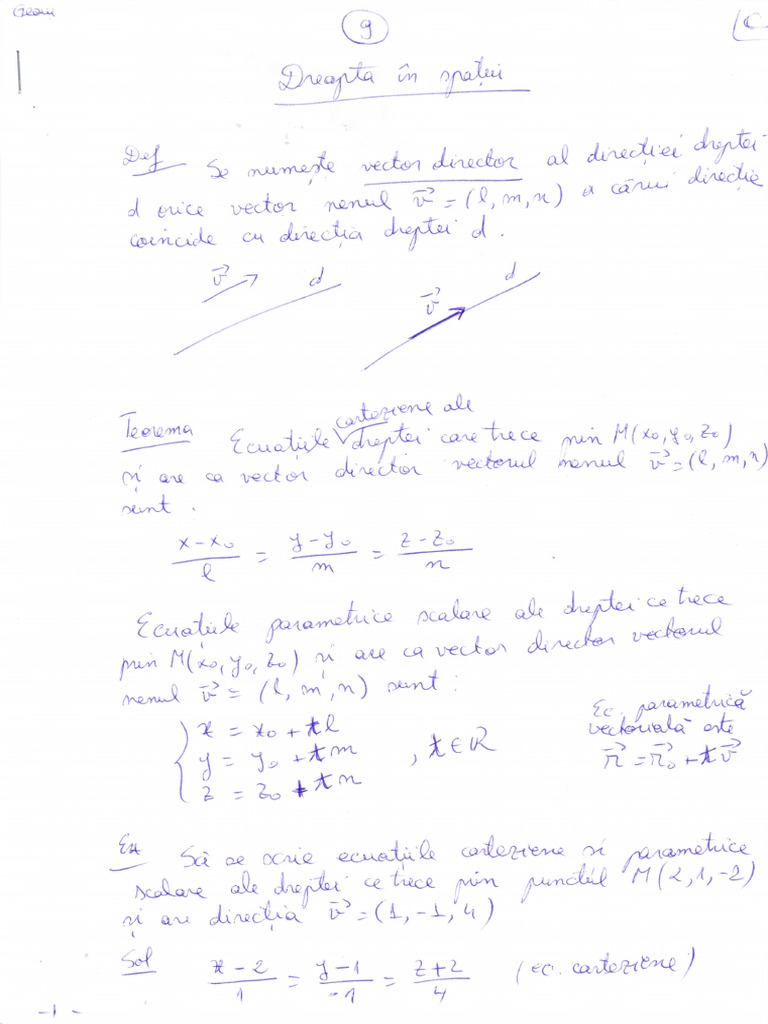 Geom
9
(C
Dreapta în spațiu
Def Se numește vector director al direcției dreptei
d orice vector nenul v⃗ = (l, m, n) a cărui direcție
coincide cu direcția dreptei d.
v⃗ d
v⃗ d
Teorema Ecuațiile carteziene ale dreptei care trece prin M(x₀, y₀, z₀)
și are ca vector director vectorul nenul v⃗ = (l, m, n)
sunt.
(x - x₀)/l = (y - y₀)/m = (z - z₀)/n
Ecuațiile parametrice scalare ale dreptei ce trece
prin M(x₀, y₀, z₀) și are ca vector director vectorul
nenul v⃗ = (l, m, n) sunt:
x = x₀ + tl
y = y₀ + tm , t ∈ R
z = z₀ + tn
Ec. parametrică
vectorială este
r⃗ = r⃗₀ + tv⃗
Ex Să se scrie ecuațiile carteziene si parametrice
scalare ale dreptei ce trece prin punctul M(2, 1, -2)
și are direcția v⃗ = (1, -1, 4)
Sol (x - 2)/1 = (y - 1)/-1 = (z + 2)/4 (ec. carteziene)
-1-